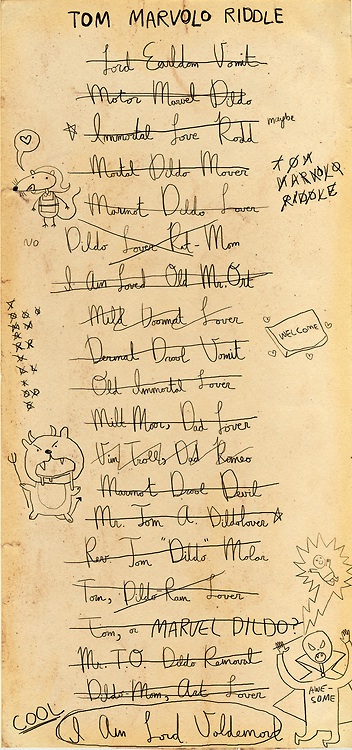 TOM MARVOLO RIDDLE
Lord Earldom Vomit
Motor Marvel Dildo
Immortal Love Rodd
maybe
Mortal Dildo Mover
TOM
MARVOLO
RIDDLE
Marmot Dildo Lover
NO
Dildo Lover Rot-Mom
I Am Loved Old Mr. Ort
Mild Doormat Lover
WELCOME
Dermal Drool Vomit
Old Immortal Lover
Milt Moor, Dad Lover
Vim Trolls, Dad Romeo
Marmot Drool Devil
Mr. Tom A. Dildolover
Rev. Tom "Dildo" Molar
Tom, Dildo Ram Lover
Tom, or MARVEL DILDO?
Mr. T.O. Dildo Removal
AWE-
SOME
Dildo Mom, Art Lover
COOL
I Am Lord Voldemort